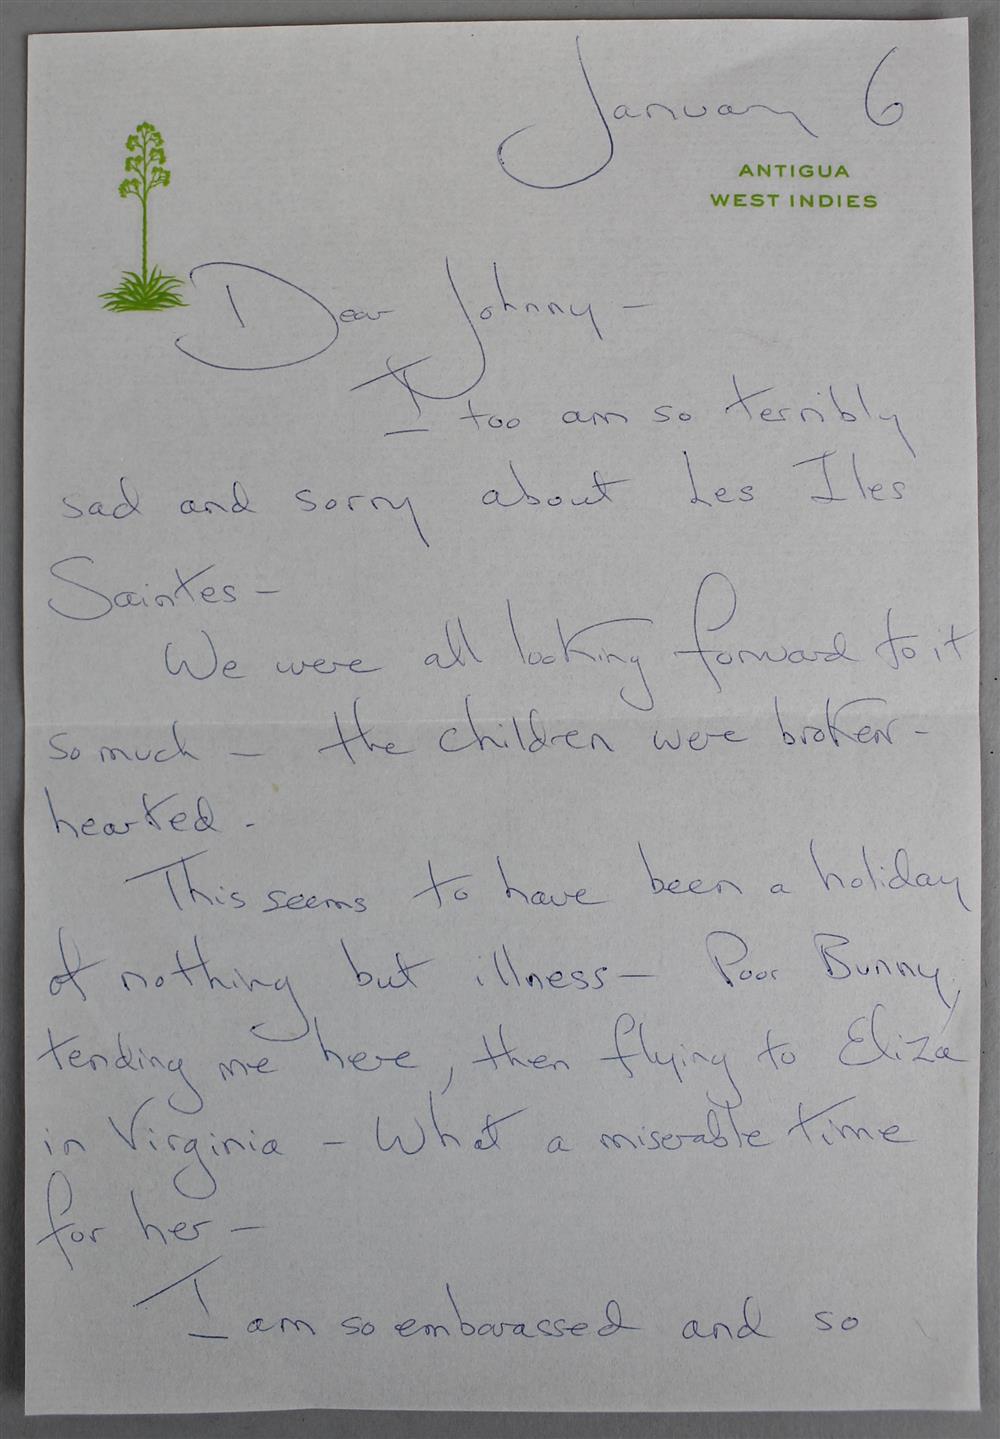 January 6
ANTIGUA
WEST INDIES
Dear Johnny –
I too am so terribly
sad and sorry about Les Iles
Saintes –
We were all looking forward to it
so much – the children were broken-
hearted -
This seems to have been a holiday
of nothing but illness – Poor Bunny,
tending me here, then flying to Eliza
in Virginia – What a miserable time
for her –
I am so embarassed and so